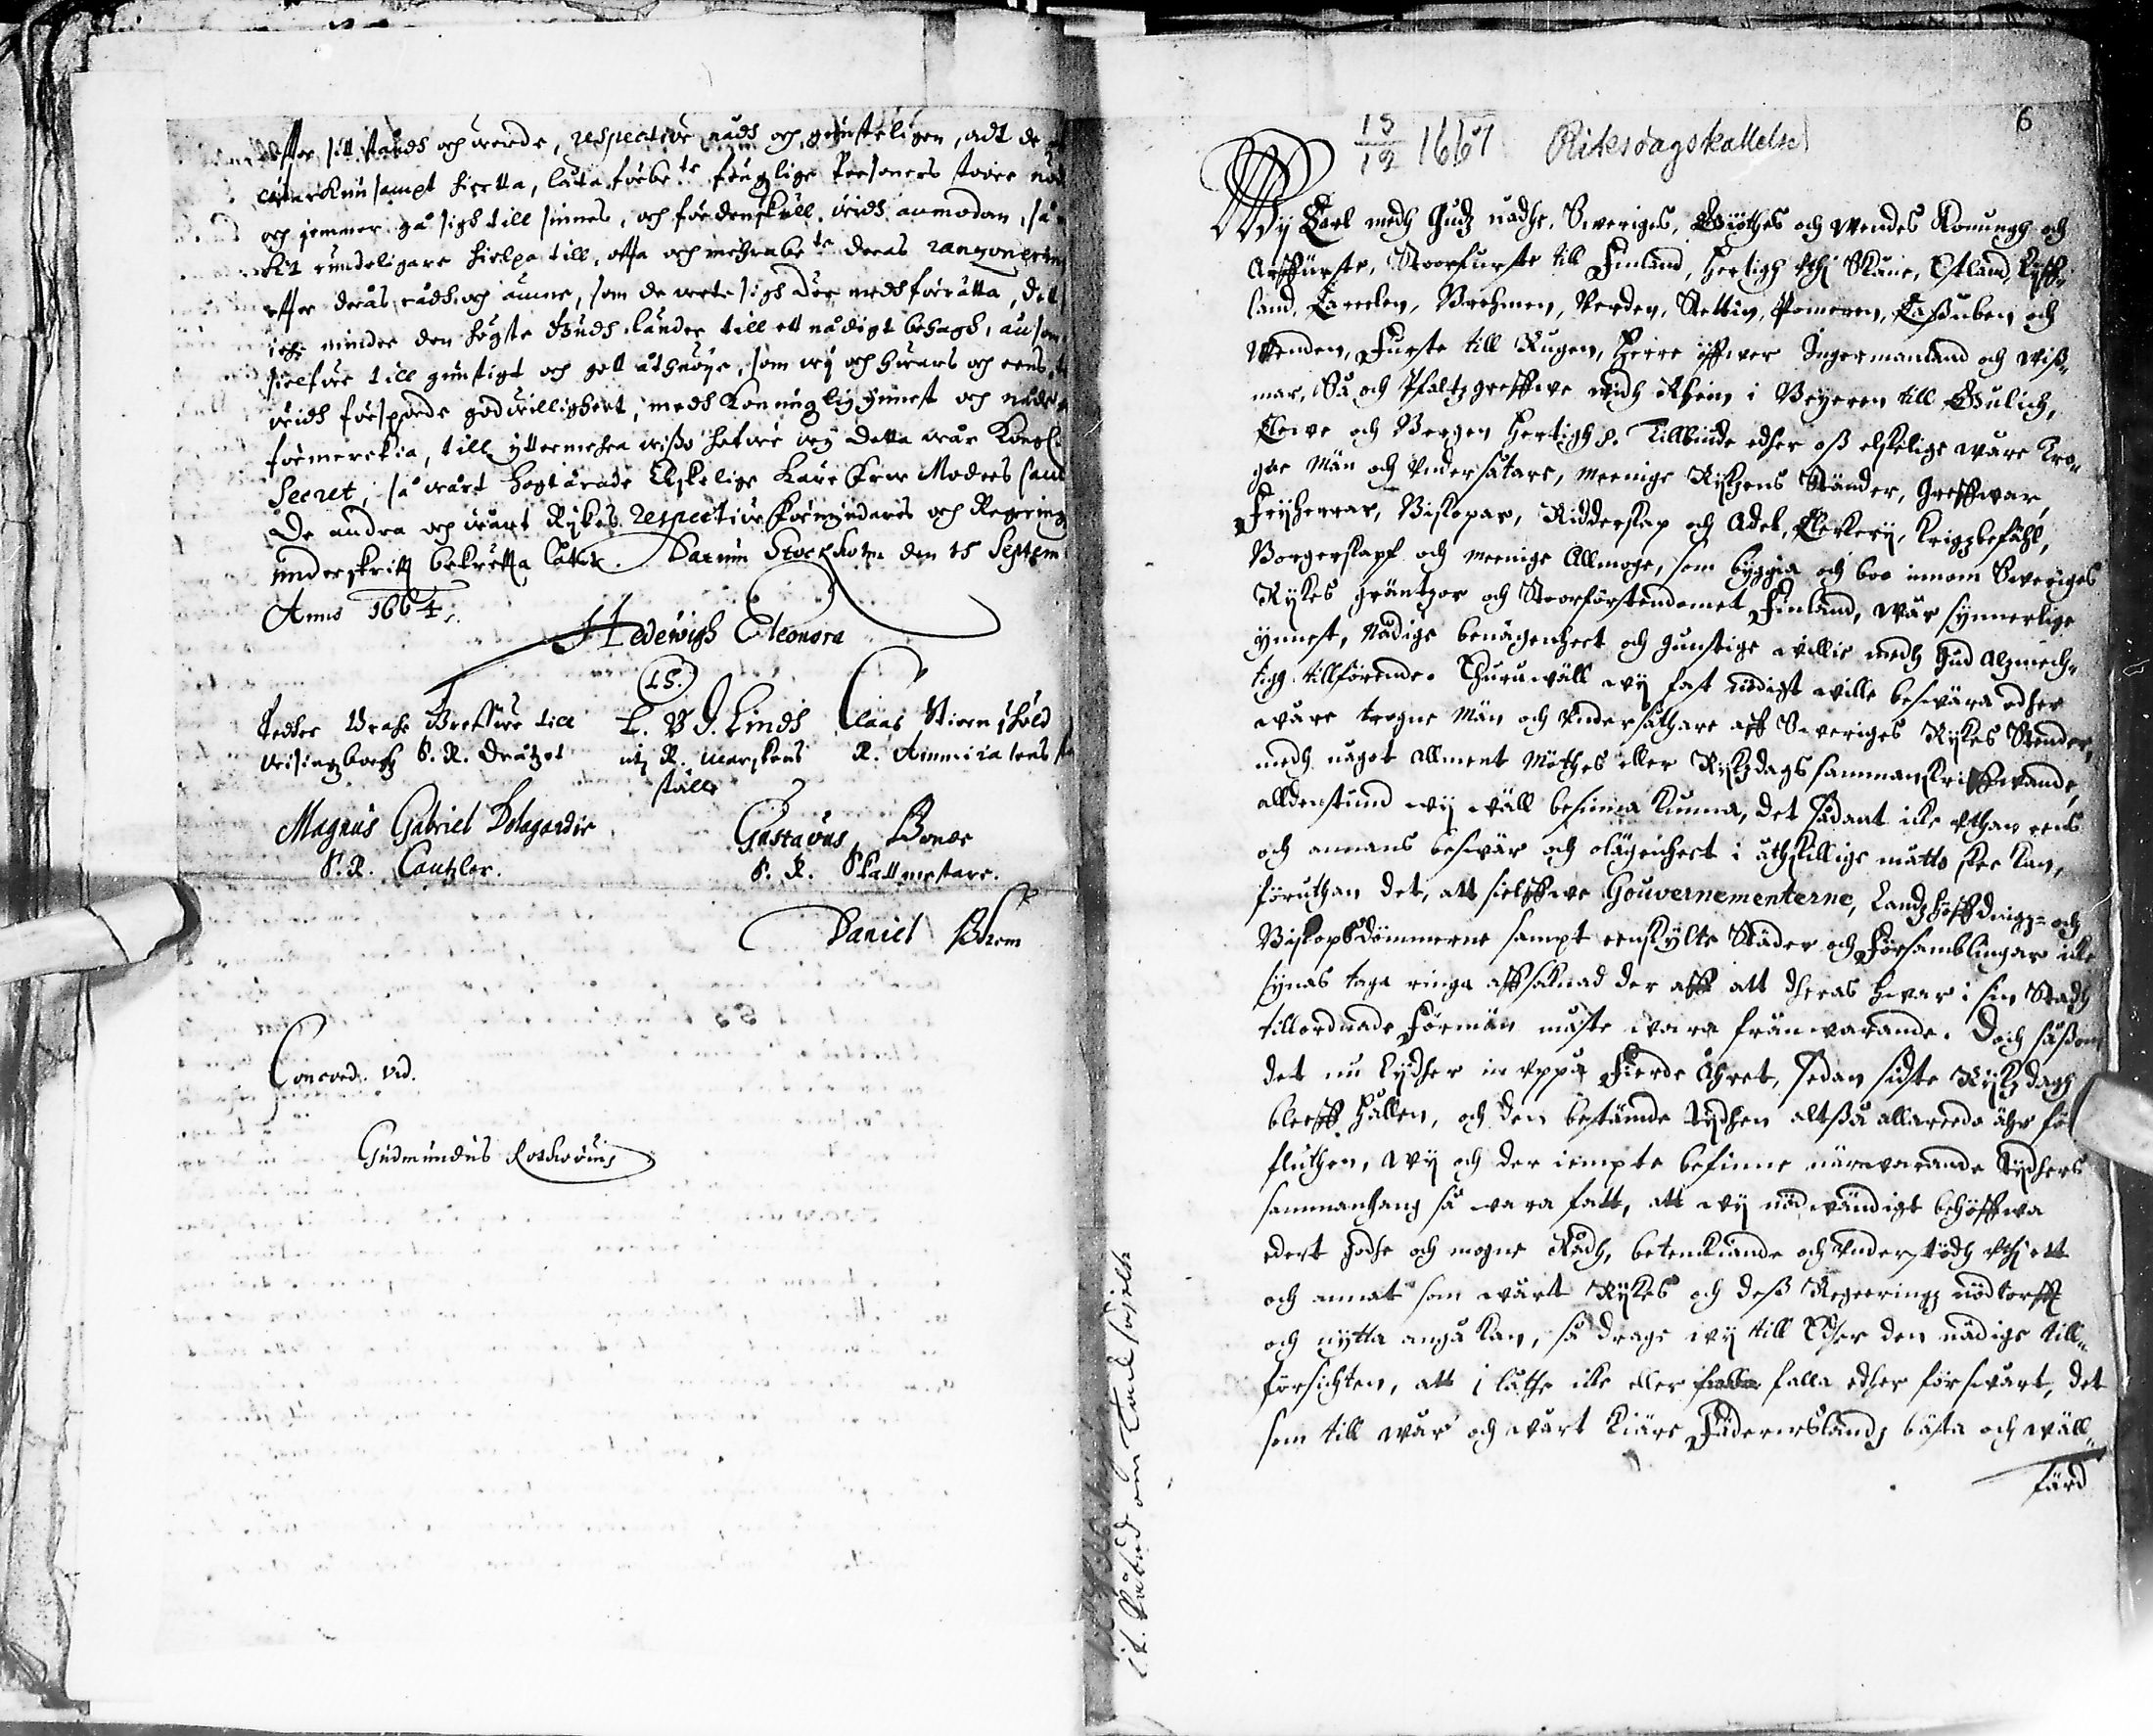 effter sitt stånds och werde, respective nåds och gunsteligen, adt de
och jemmer gå sigh till sinnes, och fördenskull, wids anmodan, så
rundeligare hielpa till, offta och mehrabe:te deras ranzonering
effter deras råds och ämne, som de wete sigh der meds förrätta, det
icke mindre den högste Guds länder till ett nådigt behagh, än som
sielfwe till gunstigt och gott åthnöye, som wij och hwars och eens
wids förspörde godwillighert, meds Konungligh ynnest och nåde
förmerckia, till yttermehra wisso hafwe wij detta wår Kongl.
Secret, så wårt högtärade Elskelige Kära Frw Moders samt
De andra och wårt Rykes respective Förmyndares och Regering
underskrifft bekrefta låtit. Datum Stockholm den 15 Septem
Anno 1664.
Hedewigh Eleonora
(LS.)
Pedher Brahe Greffwe till L. W. Linds Claas Stiernsköld
Wisingzborgh S. R. Drätzet uti R. Marskens R. Ammiralens
ställe
Magnus Gabriel Delagardie Gustavus Bonde
S. R. Cantzler. S. R. Skattmestare.
Daniel Behm
Concord. vid.
Gudmundus
6
15/12 1667 Riksdagskallelse
Wij Carl medh Gudz nådhe, Sweriges, Giöthes och Wendes Konungh och
Arffurste, Stoorfurste till Finland, Hertigh uthi Skåne, Estland, Lyff-
land, Carelen, Brehmen, Verden, Stettin, Pomeren, Caßuben och
Wenden, Furste till Rugen, Herre öffwer Ingermanland och Wiß-
mar, Så och Pfaltzgreffwe widh Rhein i Beyeren till Gulich,
Clewe och Bergen Hertigh p. Tillbiude edher oß elskelige ware Tro-
gne Män och Undersåtare, meenige Ryksens Ständer, Greffwar,
Fryherrar, Biskopar, Ridderskap och Adel, Clerkerij, Krigzbefähl,
Borgerskapf och meenige Allmoge, som byggia och boo innom Sweriges
Rykes gräntzor och Stoorförstendömet Finland, wår synnerlige
ynnest, Nådige benägenheet och gunstige willie medh Gud Alzmech-
tigh tillförende. Ehuruwäll wij fast nödigt wille beswära edher
wåre trogne Män och Undersåthare aff Sweriges Rykes Stender,
medh något allment Möthes eller Rykzdags sammanskriffwande,
alldenstund wij wäll besinna kunna, det sådant icke uthan eens
och annans beswär och olägenheet i åthskillige måtto skee kan,
föruthan det, att sielffwe Gouvernementerne, Landzhöffdingz- och
Biskopsdömmerne sampt eenskylte Städer och Församblingar icke
synas taga ringa affsaknad der aff att dheras hwar i sin Stadh
tillordnade Förmän måste wara frånwarande. Doch såßom
det nu lydher in uppå Fierde Åhret, sedan sidste Rykzdagh
bleeff hållen, och den bestämde Tydhen altßå allaredo ähr för
fluthen, wij och der iempte befinne närwarande Tydhers
sammanhang så wara fatt, att wij nödwändigt behöffwa
edert godhe och mogne Rådh, betenckiande och Understödh uthi ett
och annat som wårt Rykes och deß Regeeringz nödtorfft
och nytta angå kan, så drage wij till Edher den nådige till-
försichten, att i låthe icke eller falla edher förswårt, det
som till wår och wårt Kiäre Fäderneslandz bästa och wäll-
färd